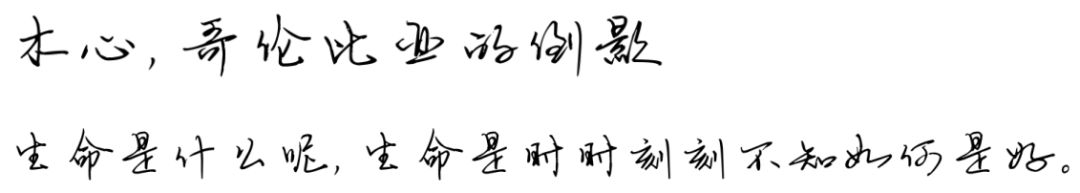 木心,哥伦比亚的倒影
生命是什么呢,生命是时时刻刻不知如何是好。